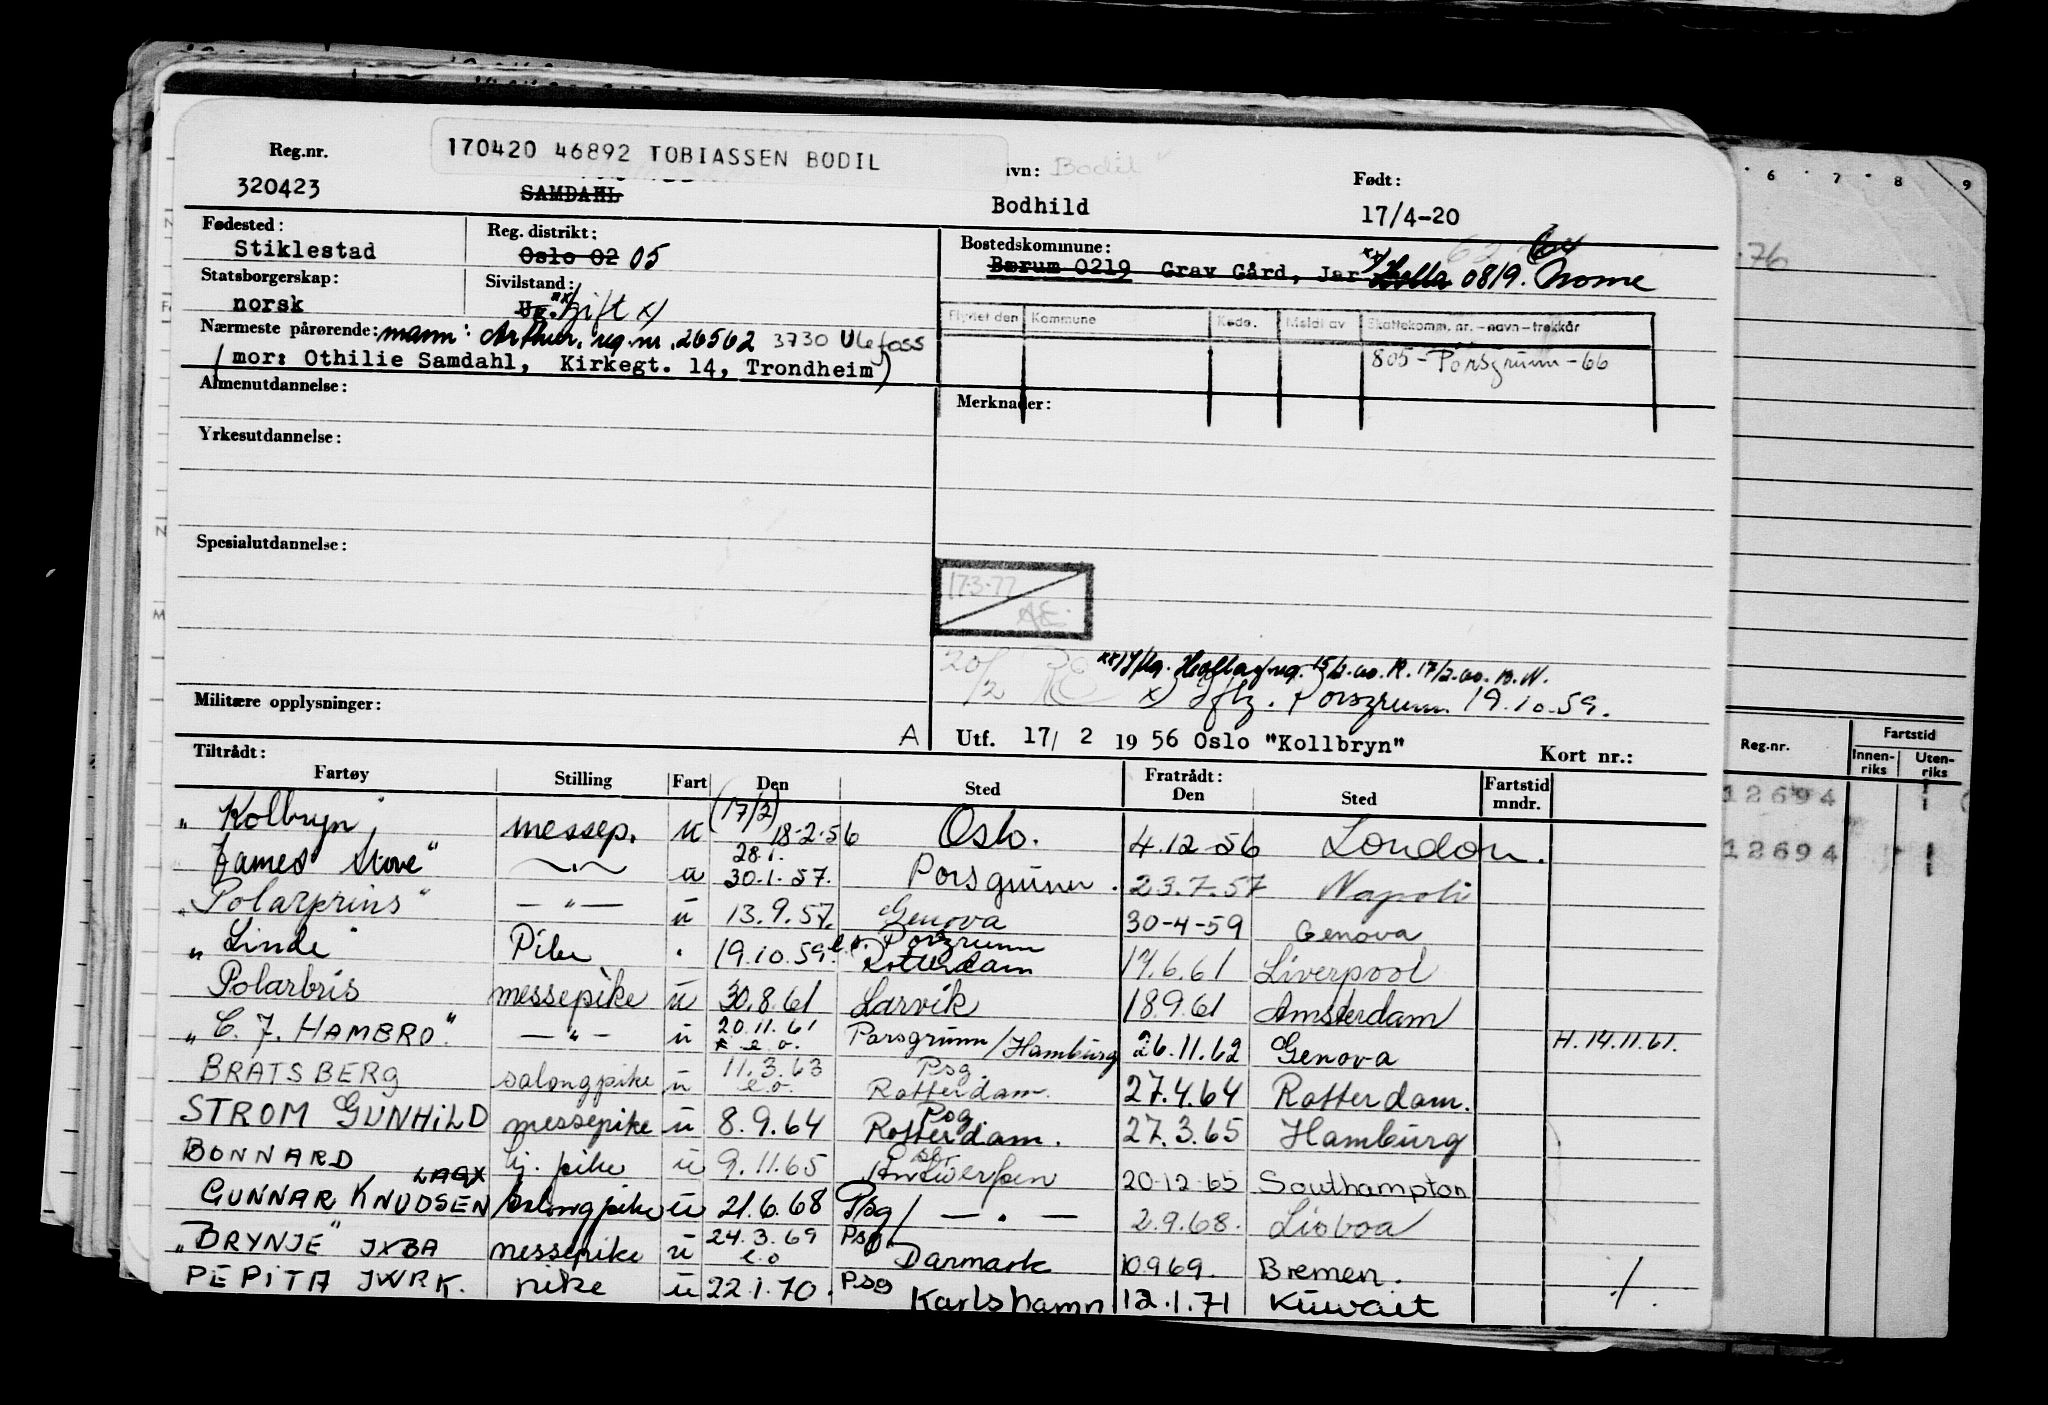 Reg.nr.
170420 46892 TOBIASSEN BODIL
vn: Bodil
Født:
320423
SAMDAHL
Bodhild
17/4-20
Fødested:
Reg. distrikt:
Bostedskommune:
Stiklestad
Oslo 02 05
Bærum 0219 Grav Gård, Jar Holla 0819. Nome
Statsborgerskap:
Sivilstand:
norsk
Ug. gift x)
Flyttet den Kommune Kode. Meldt av Skattekomm. nr.-navn-trekkår
Nærmeste pårørende: mann: Arthur, reg. nr. 26562 3730 Ulefoss
(mor: Othilie Samdahl, Kirkegt. 14, Trondheim)
805-Porsgrunn-66
Almenutdannelse:
Merknader:
Yrkesutdannelse:
Spesialutdannelse:
17-3-77
AE.
20/2
x) Porsgrunn 19.10.59.
Militære opplysninger:
A Utf. 17/ 2 19 56 Oslo "Kollbryn" Kort nr.:
Tiltrådt:
Fratrådt:
Fartøy Stilling Fart Den Sted Den Sted Fartstid mndr.
"Kolbryn" messep. u (17/2) 18-2-56 Oslo. 4.12-56 London.
James Stove" u 28.1. 30.1.57. Porsgrunn. 23.7.57 Napoli
"Polarprins" — " — u 13.9.57. Genova 30-4-59 Genova
"Linde" Pike 19.10.59 e.o. Porsgrunn Rotterdam 17.6.61 Liverpool
Polarbris messepike u 30.8.61 Larvik 18.9.61 Amsterdam
"C. J. HAMBRO" — " — u 20.11.61 e.o. Porsgrunn/Hamburg 26.11.62 Genova H.14.11.61.
BRATSBERG salongpike u 11.3.63 e.o. Psg Rotterdam. 27.4.64 Rotterdam.
STROM GUNHILD messepike u 8.9.64 Psg Rotterdam. 27.3.65 Hamburg
BONNARD pike u 9.11.65 Antwerpen 20-12-65 Southampton
GUNNAR KNUDSEN LAQX salongpike u 21.6.68 Psg/ — " — 2.9.68. Lisboa
"BRYNJE" JXBA messepike u 24.3.69 e.o Psg Danmark 10.9.69. Bremen.
PEPITA JWRK. pike u 22.1.70. Psg Karlshamn 12.1.71 Kuwait
6 7 8 9
.76
Reg.nr.
Fartstid
Innen-riks
Uten-riks
12694
12694